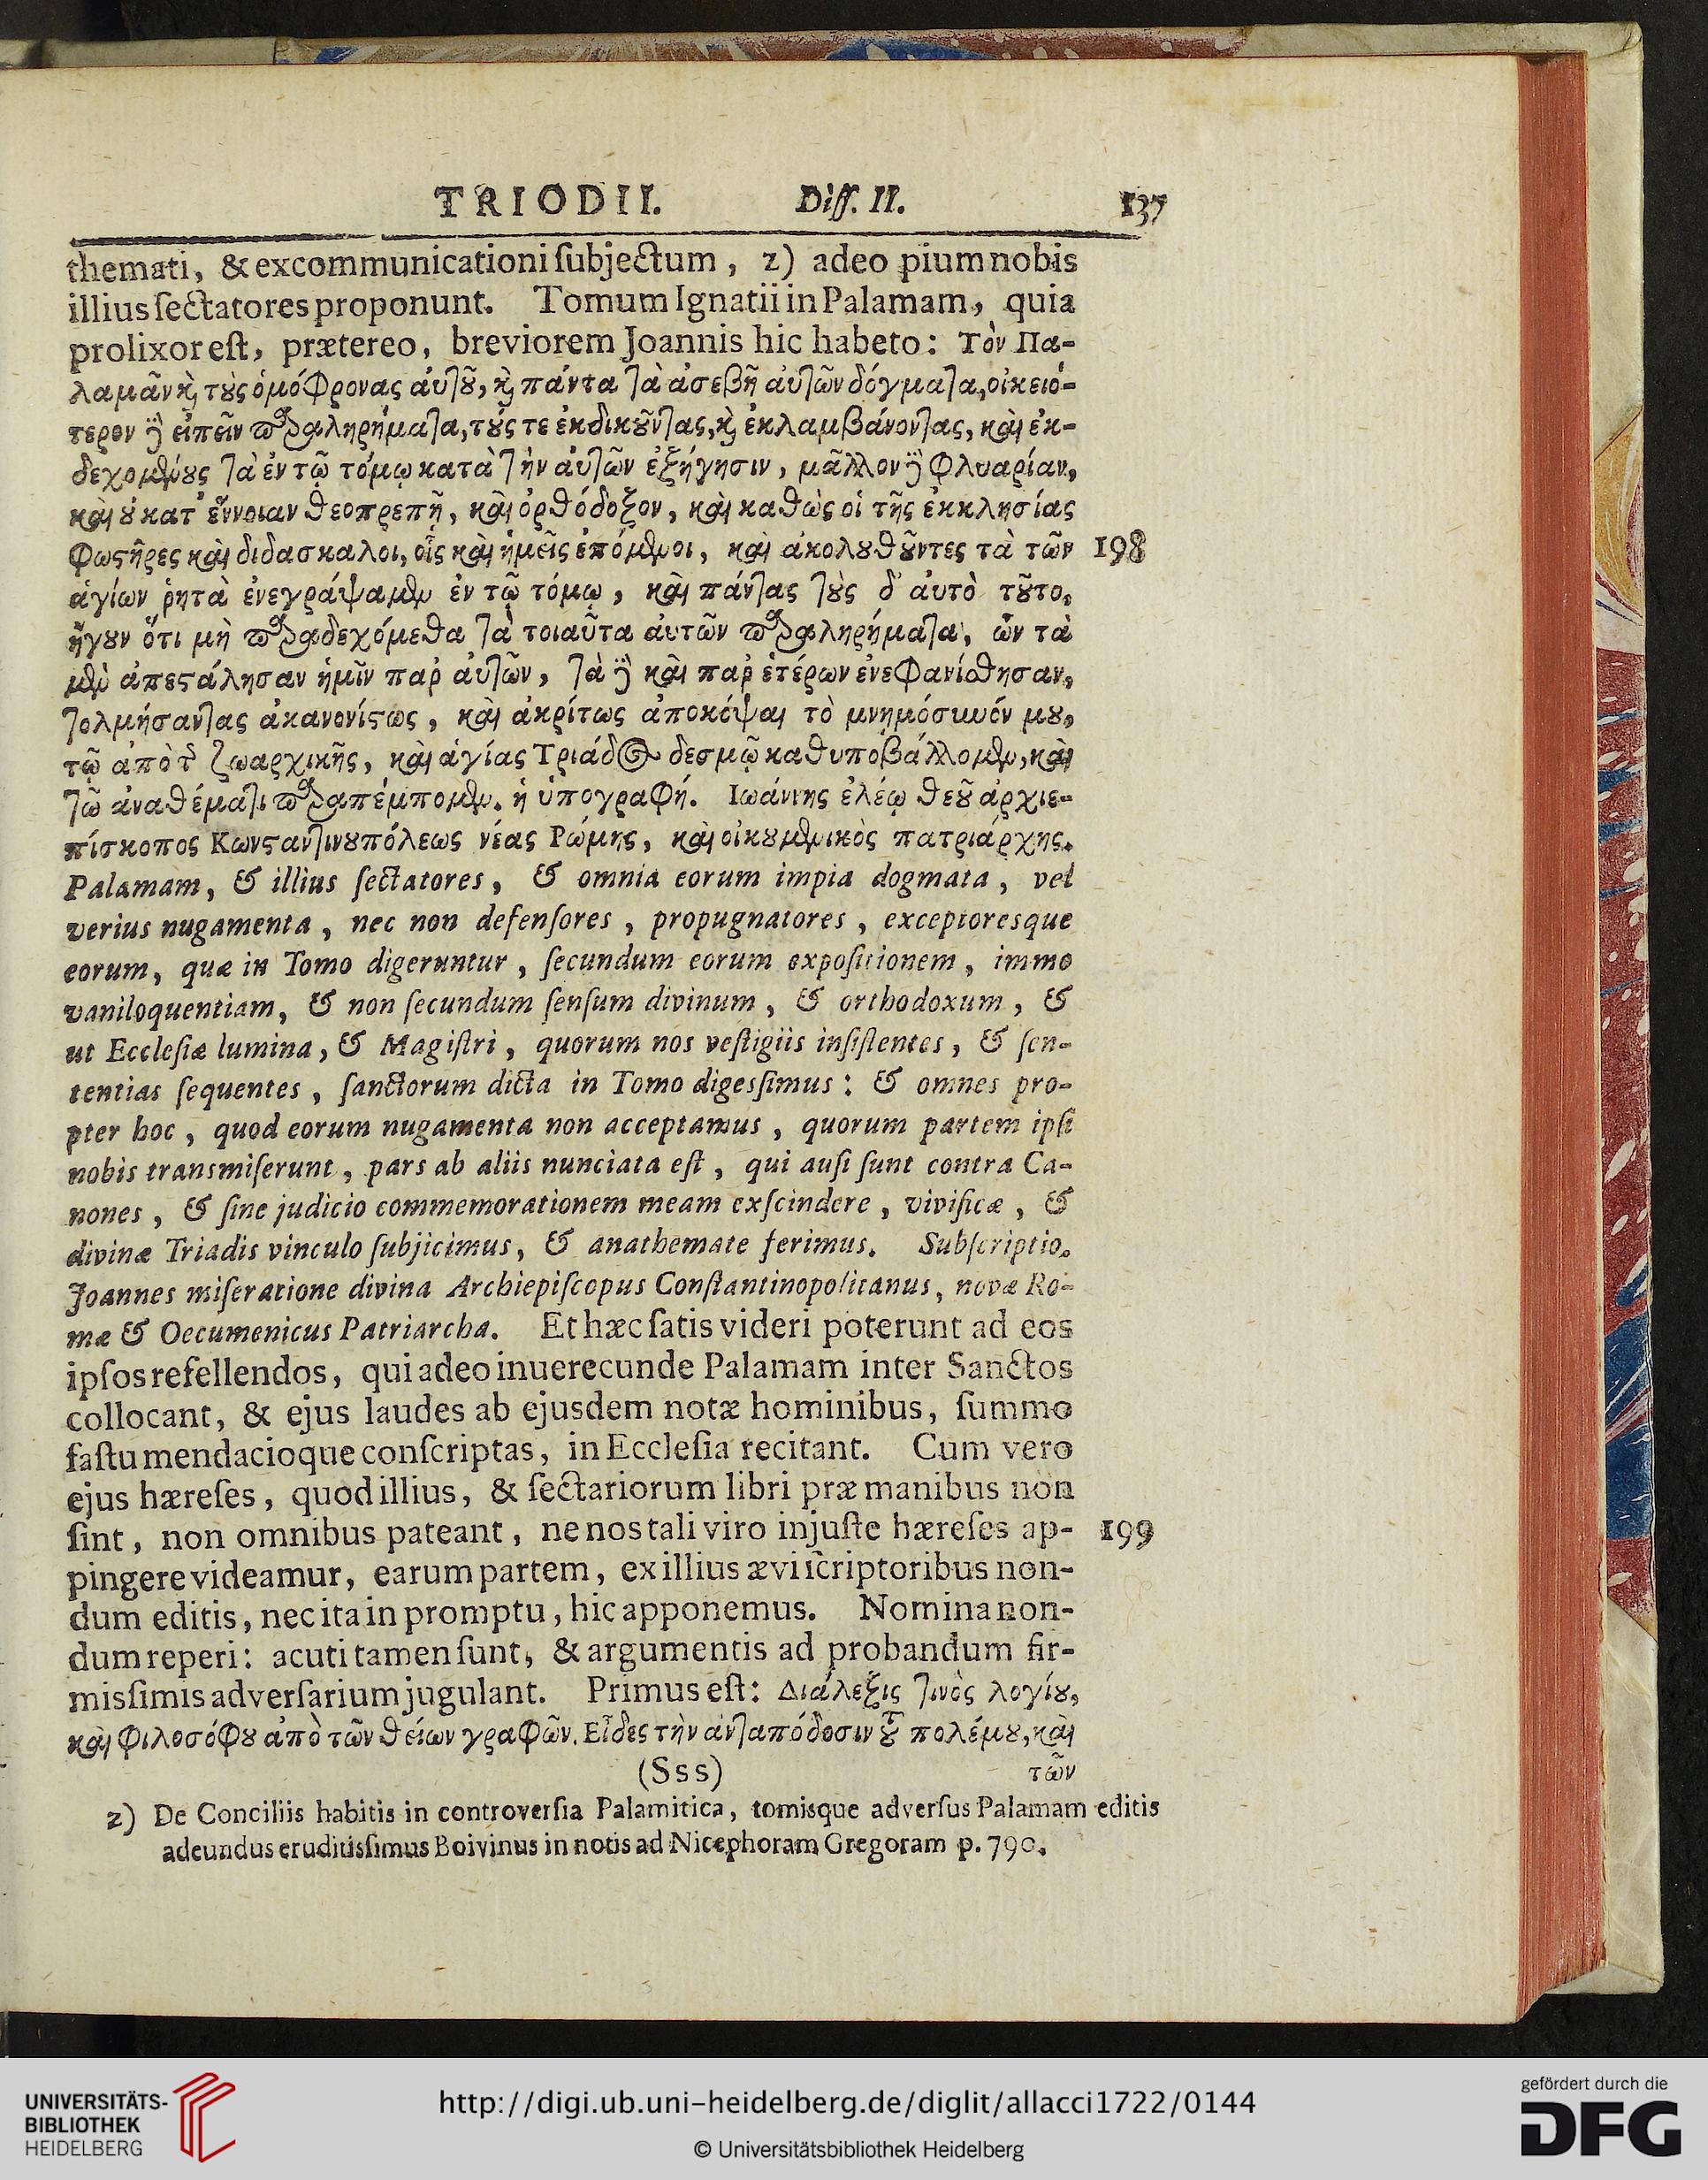 TRIODII. Diſſ. II. 137
themati, & excommunicationi ſubjectum, z) adeo pium nobis
illius ſectatores proponunt. Tomum Ignatii in Palamam, quia
prolixor eſt, prætereo, breviorem Joannis hic habeto: Τὸν Πα-
λαμᾶν κ̀ τȣ̀ς ὁμόφρονας ἀυτȣ̃, κ̀ πάντα τὰ ἀσεβῆ ἀυτῶν δόγματα, οἰκειό-
τερον ϳ̀ εἰπεῖν παραληρήματα, τȣ́ς τε ἐκδικȣ̃ντας, κ̀ ἐκλαμβάνοντας, καὶ ἐκ-
δεχομένȣς τὰ ἐν τῷ τόμῳ κατὰ τὴν ἀυτῶν ἐξήγησιν, μᾶλλον ϳ̀ φλυαρίαν,
καὶ ȣ̓ κατ' ἔννοιαν θεοπρεπῆ, καὶ ὀρθόδοξον, καὶ καθὼς οἱ τῆς ἐκκλησίας
φωϛῆρες καὶ διδασκαλοι, οἷς καὶ ἡμεῖς ἑπόμενοι, καὶ ἀκολȣθȣ̃ντες τὰ τῶν 198
ἁγίων ῥητὰ ἐνεγράψαμεν ἐν τῷ τόμῳ, καὶ πάντας τȣ̀ς δ' ἀυτὸ τȣ̃το,
ἤγȣν ὅτι μὴ παραδεχόμεθα τὰ τοιαῦτα ἀυτῶν παραληρήματα, ὧν τὰ
μὲν ἀπεϛάλησαν ἡμῖν παρ' ἀυτῶν, τὰ ϳ̀ καὶ παρ' ἑτέρων ἐνεφανίσθησαν,
τολμήσαντας ἀκανονίϛως, καὶ ἀκρίτως ἀποκόψαι τὸ μνημόσυνόν μȣ,
τῷ ἀπὸ τ̃ ζωαρχικῆς, καὶ ἁγίας Τριάδος δεσμῷ καθυποβάλλομεν, καὶ
τῷ ἀναθέματι παραπέμπομεν. ἡ ὑπογραφή. Ιωάννης ἐλέῳ θεȣ̃ ἀρχιε-
πίσκοπος Κωνϛαντινȣπόλεως νέας Ρώμης, καὶ οἰκȣμενικὸς πατριάρχης.
Palamam, & illius ſectatores, & omnia eorum impia dogmata, vel
verius nugamenta, nec non defenſores, propugnatores, exceptoresque
eorum, quæ in Tomo digeruntur, ſecundum eorum expoſitionem, immo
vaniloquentiam, & non ſecundum ſenſum divinum, & orthodoxum, &
ut Eccleſiæ lumina, & Magiſtri, quorum nos veſtigiis inſiſtentes, & ſen-
tentias ſequentes, ſanctorum dicta in Tomo digesſimus: & omnes pro-
pter hoc, quod eorum nugamenta non acceptamus, quorum partem ipſi
nobis transmiſerunt, pars ab aliis nunciata eſt, qui auſi ſunt contra Ca-
nones, & ſine judicio commemorationem meam exſcindere, vivificæ, &
divinæ Triadis vinculo ſubjicimus, & anathemate ferimus. Subſcriptio.
Joannes miſeratione divina Archiepiſcopus Conſtantinopolitanus, novæ Ro-
mæ & Oecumenicus Patriarcha. Et hæc ſatis videri poterunt ad eos
ipſos refellendos, qui adeo inuerecunde Palamam inter Sanctos
collocant, & ejus laudes ab ejusdem notæ hominibus, ſummo
faſtu mendacioque conſcriptas, in Eccleſia recitant. Cum vero
ejus hæreſes, quod illius, & ſectariorum libri præ manibus non
ſint, non omnibus pateant, ne nos tali viro injuſte hæreſes ap- 199
pingere videamur, earum partem, ex illius ævi ſcriptoribus non-
dum editis, nec ita in promptu, hic apponemus. Nomina non-
dum reperi: acuti tamen ſunt, & argumentis ad probandum fir-
misſimis adverſarium jugulant. Primus eſt: Διάλεξις τινὸς λογίȣ,
καὶ φιλοσόφȣ ἀπὸ τῶν θείων γραφῶν. Εἶδες τὴν ἀνταπόδοσιν τȣ̃ πολέμȣ, καὶ
(Sss) τῶν
z) De Conciliis habitis in controverſia Palamitica, tomisque adverſus Palamam editis
adeundus eruditisſimus Boivinus in notis ad Nicephoram Gregoram p. 790.
UNIVERSITÄTS-
BIBLIOTHEK
HEIDELBERG
http://digi.ub.uni-heidelberg.de/diglit/allacci1722/0144
© Universitätsbibliothek Heidelberg
gefördert durch die
DFG